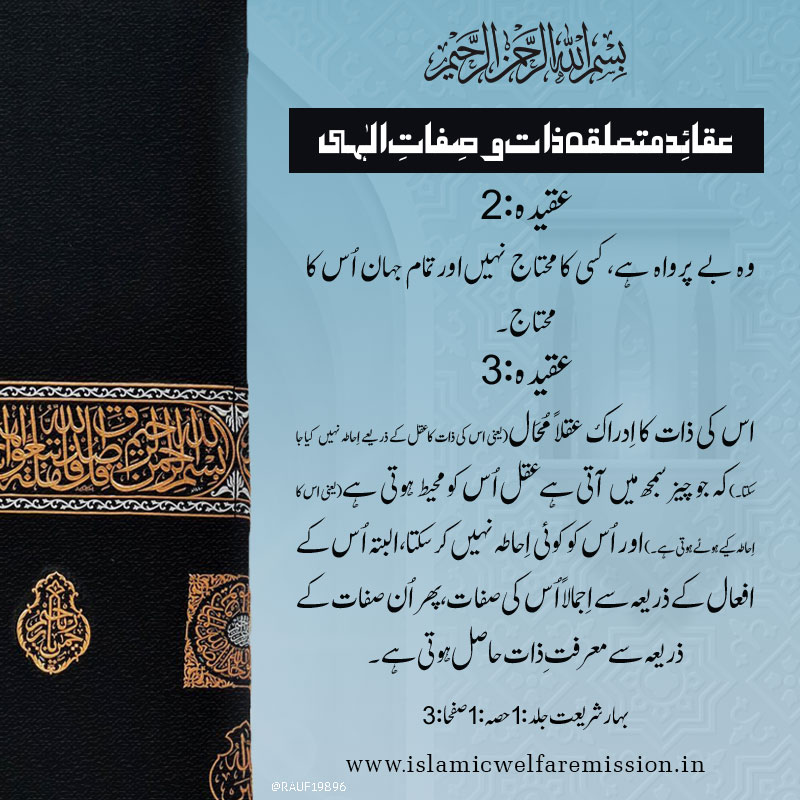 بِسْمِ اللهِ الرَّحْمٰنِ الرَّحِيْمِ
عقائِد متعلقہ ذات و صِفاتِ الٰہی
عقیدہ:2
وہ بے پرواہ ہے، کسی کا محتاج نہیں اور تمام جہان اُس کا
محتاج۔
عقیدہ:3
اس کی ذات کا اِدراک عقلاً مُحَال (یعنی اس کی ذات کا عقل کے ذریعے اِحاطہ نہیں کیا جا
سکتا۔) کہ جو چیز سمجھ میں آتی ہے عقل اُس کو محیط ہوتی ہے (یعنی اس کا
اِحاطہ کیے ہوئے ہوتی ہے۔) اور اُس کو کوئی اِحاطہ نہیں کر سکتا، البتہ اُس کے
افعال کے ذریعہ سے اِجمالاً اُس کی صفات، پھر اُن صفات کے
ذریعہ سے معرفتِ ذات حاصل ہوتی ہے۔
بہار شریعت جلد:1 حصہ:1 صفحا:3
www.islamicwelfaremission.in
@RAUF19896